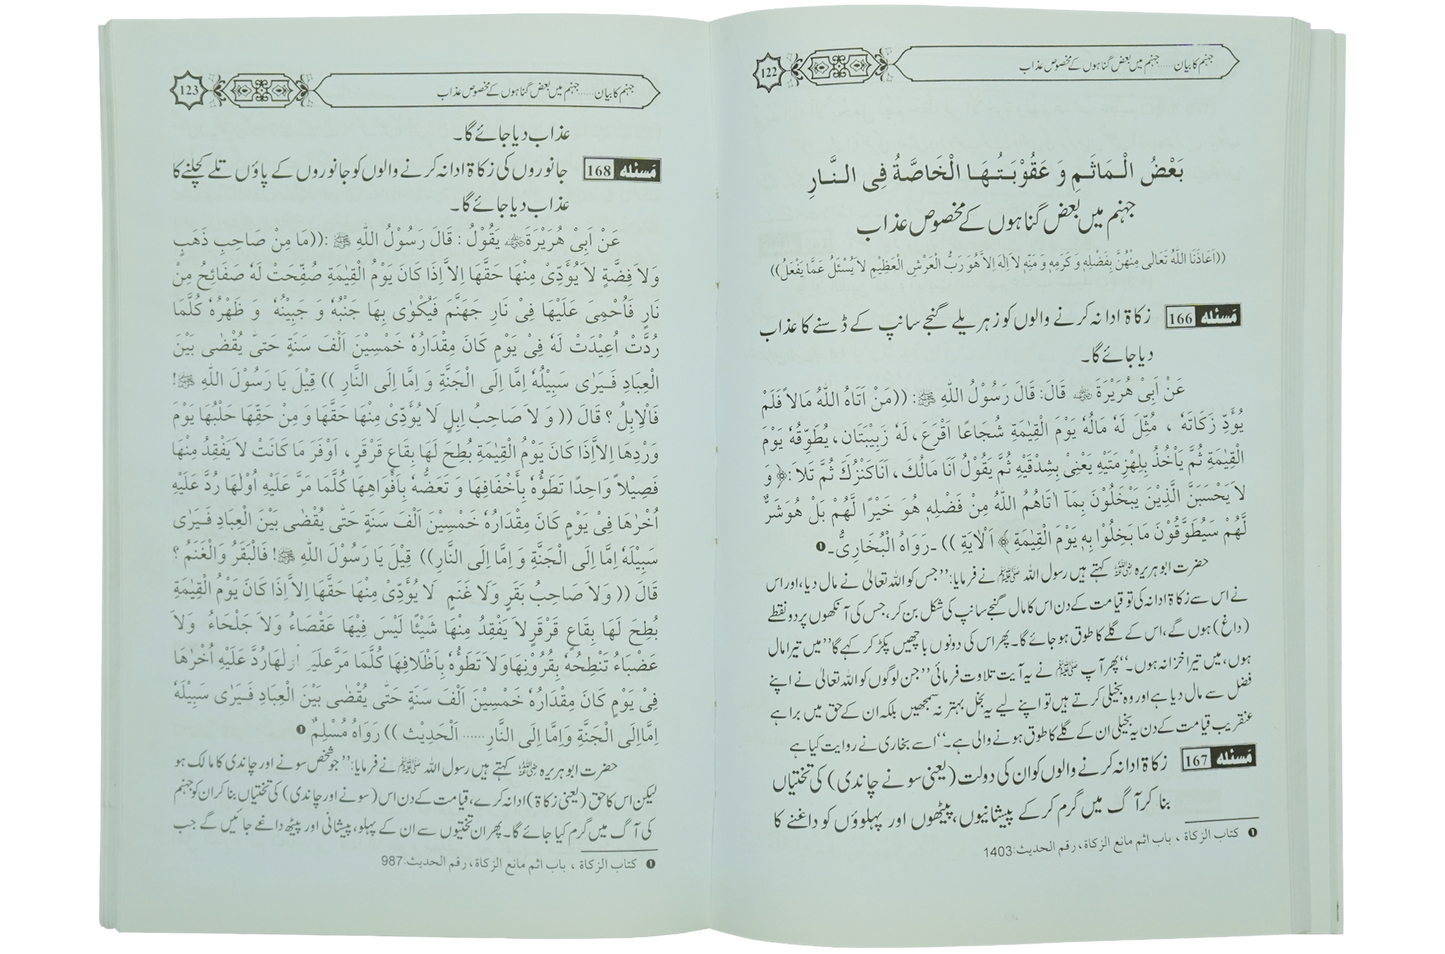 جہنم کا بیان.....جہنم میں بعض گناہوں کے مخصوص عذاب
122
بَعْضُ الْمَاٰثِمِ وَ عَقُوْبَتُهَا الْخَاصَّةُ فِي النَّارِ
جہنم میں بعض گناہوں کے مخصوص عذاب
((اَعَاذَنَا اللّٰهُ تَعَالٰى مِنْهُنَّ بِفَضْلِهٖ وَ كَرَمِهٖ وَ مَنِّهٖ لَا اِلٰهَ اِلَّا هُوَ رَبُّ الْعَرْشِ الْعَظِيْمِ لَا يُسْئَلُ عَمَّا يَفْعَلُ))
مَسئله 166 زکاۃ ادا نہ کرنے والوں کو زہریلے گنجے سانپ کے ڈسنے کا عذاب
دیا جائے گا۔
عَنْ اَبِیْ هُرَيْرَةَ ؓ قَالَ: قَالَ رَسُوْلُ اللّٰهِ ﷺ: ((مَنْ اٰتَاهُ اللّٰهُ مَالاً فَلَمْ
يُؤَدِّ زَكَاتَهٗ ، مُثِّلَ لَهٗ مَالُهٗ يَوْمَ الْقِيٰمَةِ شُجَاعًا اَقْرَعَ ، لَهٗ زَبِيْبَتَانِ، يُطَوِّقُهٗ يَوْمَ
الْقِيٰمَةِ ثُمَّ يَاْخُذُ بِلِهْزِمَتَيْهِ يَعْنِیْ بِشِدْقَيْهِ ثُمَّ يَقُوْلُ اَنَا مَالُكَ ، اَنَا كَنْزُكَ ثُمَّ تَلاَ :﴿ وَ
لاَ يَحْسَبَنَّ الَّذِيْنَ يَبْخَلُوْنَ بِمَآ اٰتَاهُمُ اللّٰهُ مِنْ فَضْلِهٖ هُوَ خَيْرًا لَّهُمْ بَلْ هُوَ شَرٌّ
لَّهُمْ سَيُطَوَّقُوْنَ مَا بَخِلُوْا بِهٖ يَوْمَ الْقِيٰمَةِ ﴾ اَلْاٰيَةِ )) ۔ رَوَاهُ الْبُخَارِیُّ۔❶
حضرت ابو ہریرہ ؓ کہتے ہیں رسول اللہ ﷺ نے فرمایا: ’’جس کو اللہ تعالیٰ نے مال دیا، اور اس
نے اس سے زکاۃ ادا نہ کی تو قیامت کے دن اس کا مال گنجے سانپ کی شکل بن کر، جس کی آنکھوں پر دو نقطے
(داغ) ہوں گے، اس کے گلے کا طوق ہو جائے گا۔ پھر اس کی دونوں باچھیں پکڑ کر کہے گا ’’میں تیرا مال
ہوں، میں تیرا خزانہ ہوں۔‘‘ پھر آپ ﷺ نے یہ آیت تلاوت فرمائی ’’جن لوگوں کو اللہ تعالیٰ نے اپنے
فضل سے مال دیا ہے اور وہ بخیلی کرتے ہیں تو اپنے لیے یہ بخل بہتر نہ سمجھیں بلکہ ان کے حق میں برا ہے
عنقریب قیامت کے دن یہ بخیلی ان کے گلے کا طوق ہونے والی ہے۔‘‘ اسے بخاری نے روایت کیا ہے
مَسئله 167 زکاۃ ادا نہ کرنے والوں کو ان کی دولت (یعنی سونے چاندی) کی تختیاں
بنا کر آگ میں گرم کر کے پیشانیوں، پیٹھوں اور پہلوؤں کو داغنے کا
❶ کتاب الزکاۃ ، باب اثم مانع الزکاۃ، رقم الحدیث:1403
جہنم کا بیان.....جہنم میں بعض گناہوں کے مخصوص عذاب
123
عذاب دیا جائے گا۔
مَسئله 168 جانوروں کی زکاۃ ادا نہ کرنے والوں کو جانوروں کے پاؤں تلے کچلنے کا
عذاب دیا جائے گا۔
عَنْ اَبِیْ هُرَيْرَةَ ؓ يَقُوْلُ : قَالَ رَسُوْلُ اللّٰهِ ﷺ :((مَا مِنْ صَاحِبِ ذَهَبٍ
وَلاَ فِضَّةٍ لاَ يُؤَدِّیْ مِنْهَا حَقَّهَا اِلاَّ اِذَا كَانَ يَوْمُ الْقِيٰمَةِ صُفِّحَتْ لَهٗ صَفَائِحُ مِنْ
نَارٍ فَاُحْمِیَ عَلَيْهَا فِیْ نَارِ جَهَنَّمَ فَيُكْوٰی بِهَا جَنْبُهٗ وَ جَبِيْنُهٗ وَ ظَهْرُهٗ كُلَّمَا
رُدَّتْ اُعِيْدَتْ لَهٗ فِیْ يَوْمٍ كَانَ مِقْدَارُهٗ خَمْسِيْنَ اَلْفَ سَنَةٍ حَتّٰی يُقْضٰی بَيْنَ
الْعِبَادِ فَيَرٰی سَبِيْلُهٗ اِمَّا اِلَی الْجَنَّةِ وَ اِمَّا اِلَی النَّارِ )) قِيْلَ يَا رَسُوْلَ اللّٰهِ ﷺ!
فَالْاِبِلُ ؟ قَالَ (( وَ لاَ صَاحِبُ اِبِلٍ لاَ يُؤَدِّیْ مِنْهَا حَقَّهَا وَ مِنْ حَقِّهَا حَلْبُهَا يَوْمَ
وِرْدِهَا اِلاَّ اِذَا كَانَ يَوْمُ الْقِيٰمَةِ بُطِحَ لَهَا بِقَاعٍ قَرْقَرٍ ، اَوْفَرَ مَا كَانَتْ لاَ يَفْقِدُ مِنْهَا
فَصِيْلاً وَاحِدًا تَطَؤُهٗ بِاَخْفَافِهَا وَ تَعَضُّهٗ بِاَفْوَاهِهَا كُلَّمَا مَرَّ عَلَيْهِ اُوْلٰهَا رُدَّ عَلَيْهِ
اُخْرٰهَا فِیْ يَوْمٍ كَانَ مِقْدَارُهٗ خَمْسِيْنَ اَلْفَ سَنَةٍ حَتّٰی يُقْضٰی بَيْنَ الْعِبَادِ فَيَرٰی
سَبِيْلَهٗ اِمَّا اِلَی الْجَنَّةِ وَ اِمَّا اِلَی النَّارِ)) قِيْلَ يَا رَسُوْلَ اللّٰهِ ﷺ! فَالْبَقَرُ وَالْغَنَمُ ؟
قَالَ (( وَلاَ صَاحِبُ بَقَرٍ وَلاَ غَنَمٍ لاَ يُؤَدِّیْ مِنْهَا حَقَّهَا اِلاَّ اِذَا كَانَ يَوْمُ الْقِيٰمَةِ
بُطِحَ لَهَا بِقَاعٍ قَرْقَرٍ لاَ يَفْقِدُ مِنْهَا شَيْئًا لَيْسَ فِيْهَا عَقْصَاءُ وَلاَ جَلْحَاءُ وَلاَ
عَضْبَاءُ تَنْطِحُهٗ بِقُرُوْنِهَا وَلاَ تَطَؤُهٗ بِاَظْلاَفِهَا كُلَّمَا مَرَّ عَلَيْهِ اُوْلٰهَا رُدَّ عَلَيْهِ اُخْرٰهَا
فِیْ يَوْمٍ كَانَ مِقْدَارُهٗ خَمْسِيْنَ اَلْفَ سَنَةٍ حَتّٰی يُقْضٰی بَيْنَ الْعِبَادِ فَيَرٰی سَبِيْلَهٗ
اِمَّا اِلَی الْجَنَّةِ وَاِمَّا اِلَی النَّارِ...... اَلْحَدِيْث )) رَوَاهُ مُسْلِمٌ ❶
حضرت ابو ہریرہ ؓ کہتے ہیں رسول اللہ ﷺ نے فرمایا: ’’جو شخص سونے اور چاندی کا مالک ہو
لیکن اس کا حق (یعنی زکاۃ) ادا نہ کرے، قیامت کے دن اس (سونے اور چاندی) کی تختیاں بنا کر ان کو جہنم
کی آگ میں گرم کیا جائے گا۔ پھر ان تختیوں سے ان کے پہلو، پیشانی اور پیٹھ داغے جائیں گے جب
❶ کتاب الزکاۃ ، باب اثم مانع الزکاۃ، رقم الحدیث:987